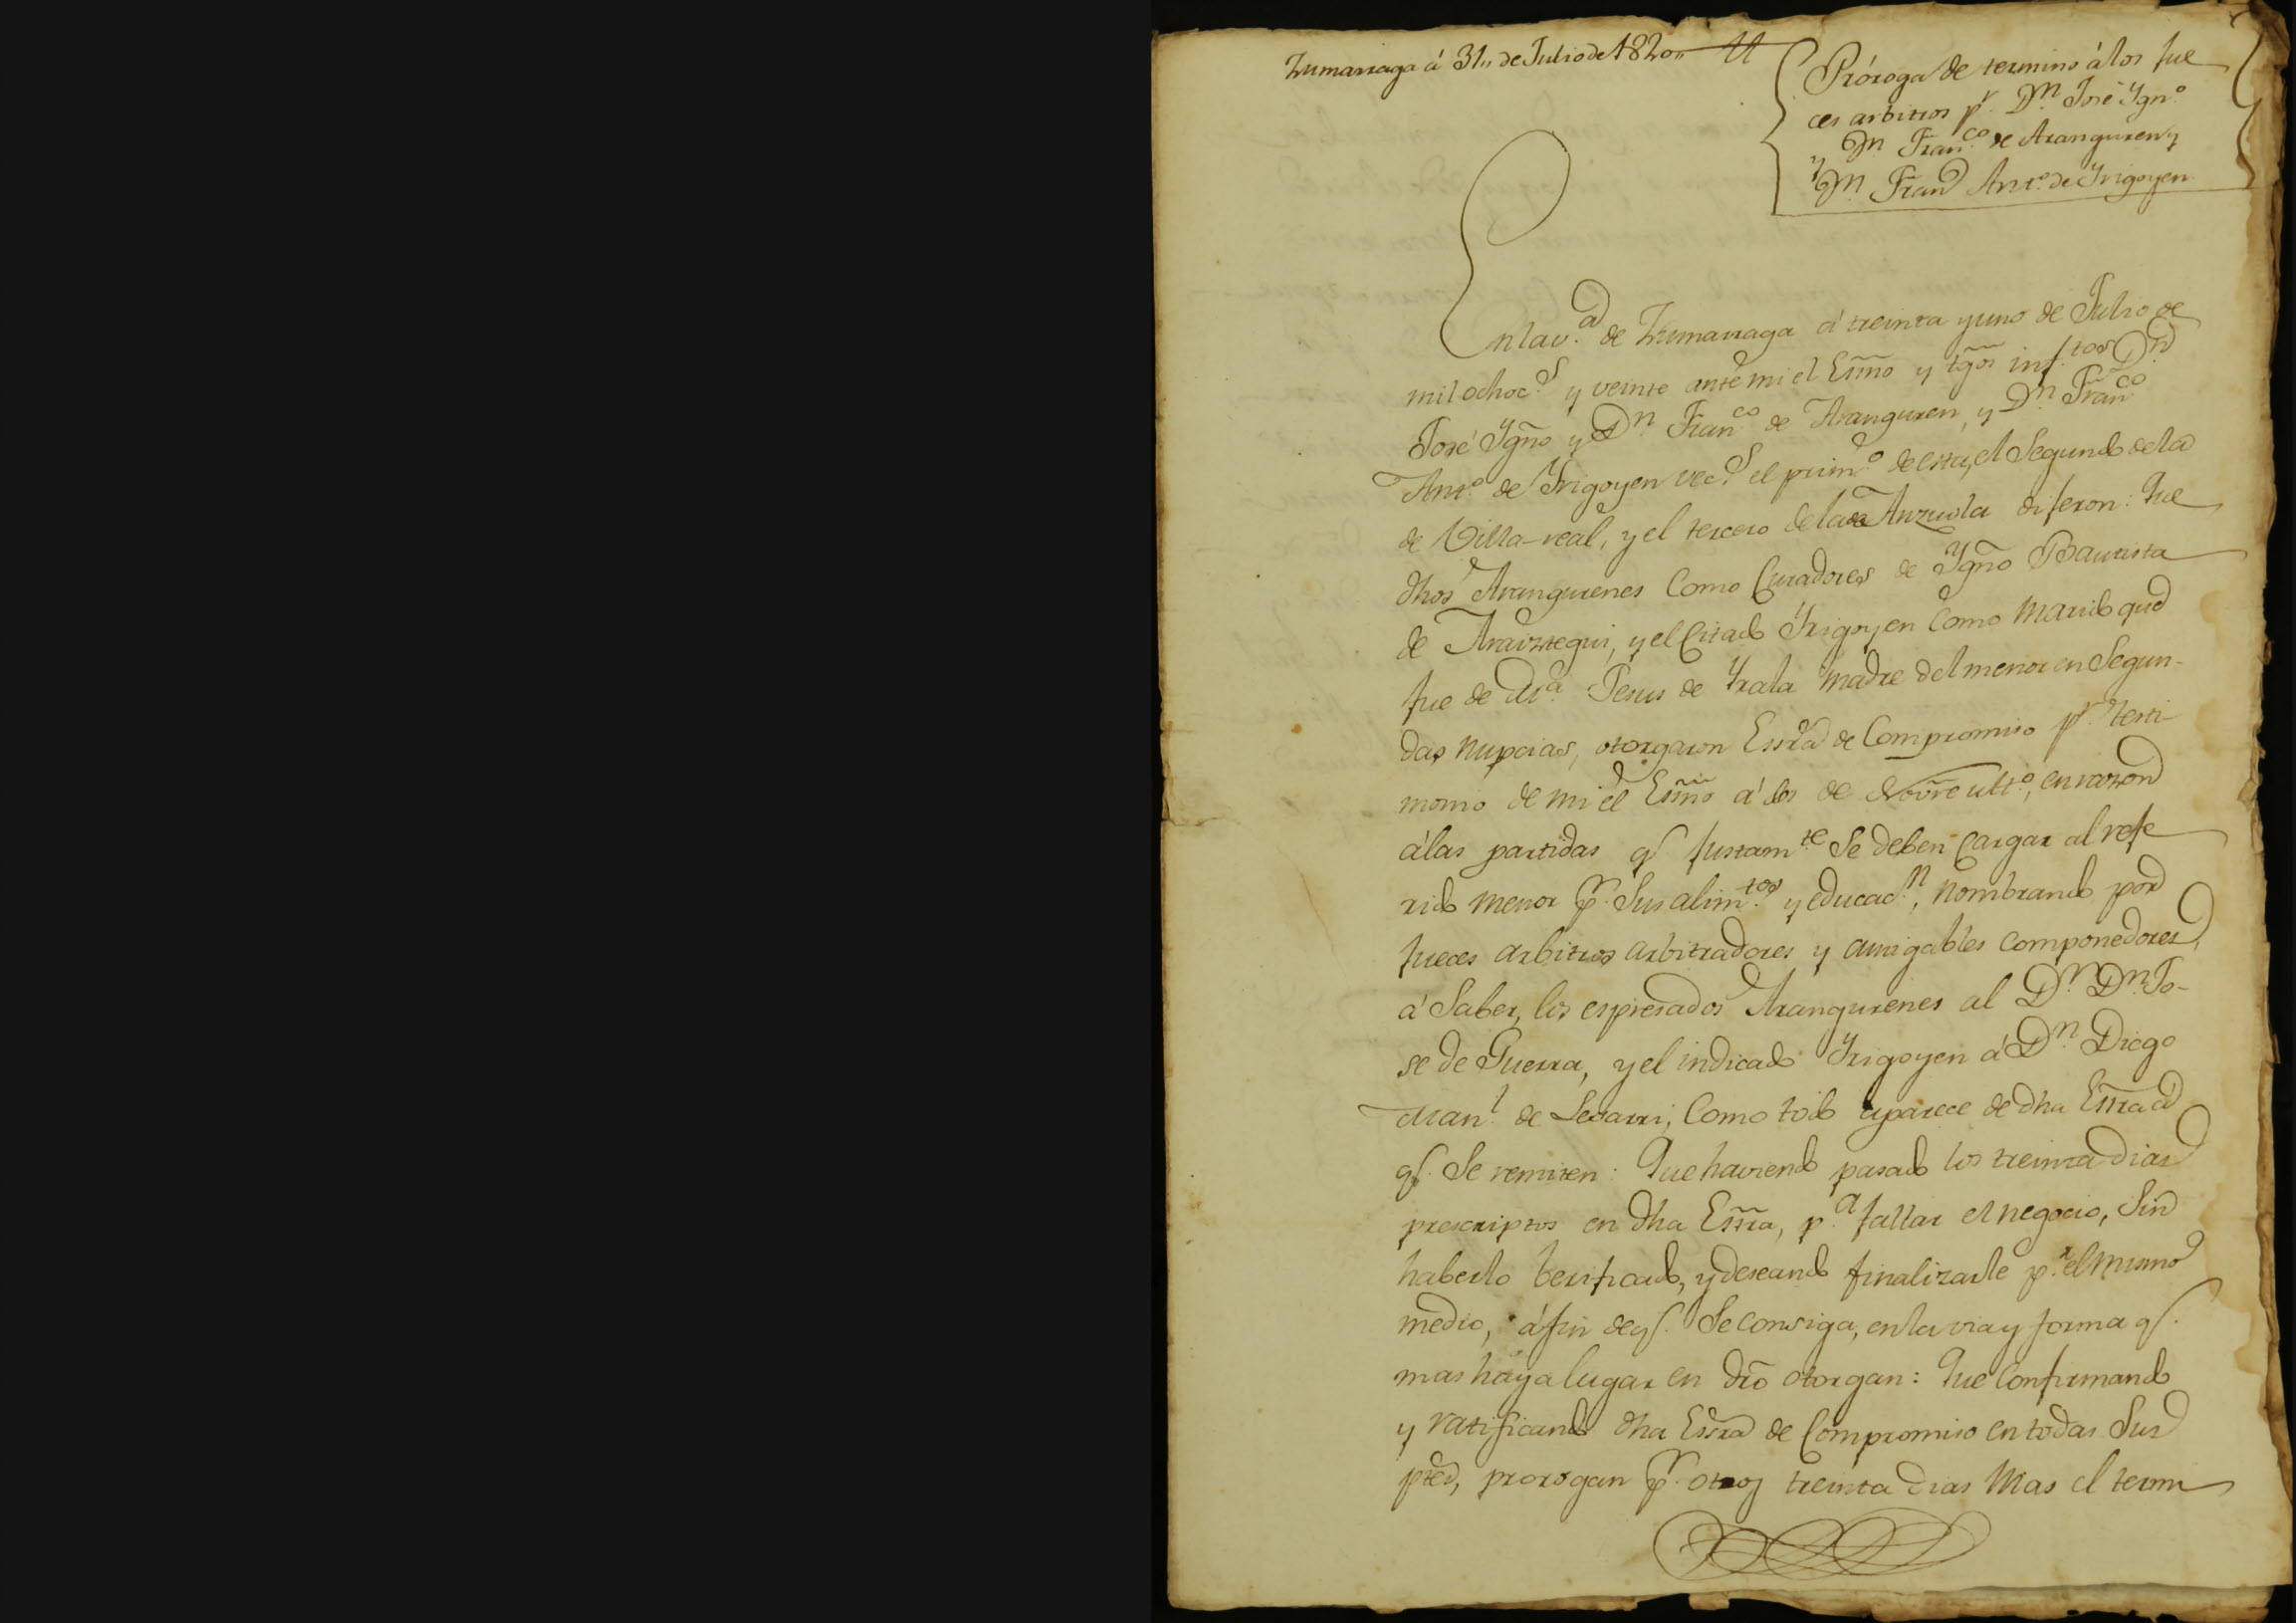 Zumarraga á 31,, de Julio de 1820,,
Próroga de termino á los jue
ces arbitros pr. Dn. José Ygno.
y Dn. Franco. de Aranguren y
Dn. Fran Anto. de Yrigoyen
En la va. de Zumarraga á treinta y uno de Julio de
mil ochocs. y veinte ante mi el Esño y tgõs infstos. Dn.
José Ygño y Dn. Franco. de Aranguren, y Dn. Franco
Anto. de Yrigoyen vecs. el primo. de esta, el Segundo de la
de Villa-real, y el tercero de la de Anzuola dijeron: Que
dhos Arangurenes Como Curadores de Ygño Bautista
de Arauztegui, y el Citado Yrigoyen Como Marido que
fue de Ma. Jesus de Yrala Madre del menor en Segun-
das Nupcias, otorgaron Essra de Compromiso pr. testi-
monio de mi el Esño á dos de Novre ulto., en razon
á las partidas q justamte. Se deben Cargar al refe
rido Menor pr. Sus alimtos. y educacn., Nombrando por
jueces arbitros arbitradores y amigables Componedores,
á Saber, los espresados Arangurenes al Dr. Dn. Jo-
se de Guerra, y el indicado Yrigoyen á Dn. Diego
Manl. de Lesarri, Como todo aparece de dha Essra á
q. Se remiten: Que haviendo pasado los treinta dias
prescriptos en dha Essra, pa. fallar el negocio, Sin
haberlo Verificado, y deseando finalizarle pr. el mismo
medio, á fin de q. Se Consiga, en la via y forma q.
mas haya lugar en dro otorgan: Que Confirmando
y Ratificando dha Essra de Compromiso en todas Sus
ptes, prorogan pr. otros treinta dias Mas el termi